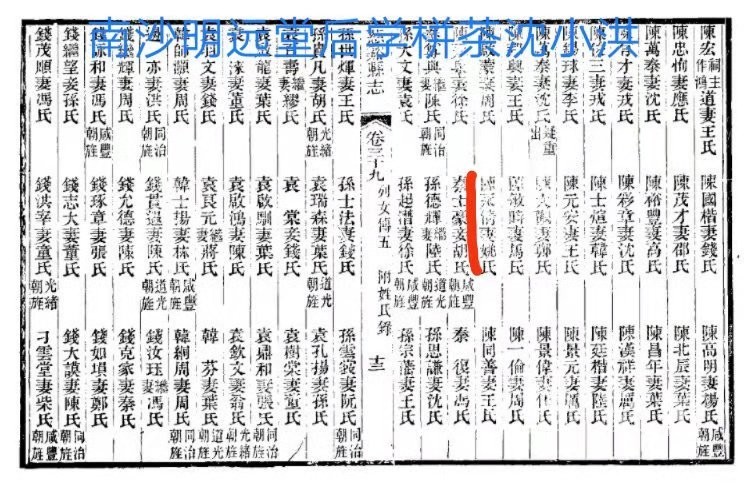 南沙明远堂后学样茶沈小洪
陳宏祠主作鴻道妻王氏 陳國楷妻錢氏 陳高明妻楊氏咸豐朝旌
陳忠恂妻應氏 陳茂才妻邵氏 陳北辰妻葉氏
陳萬泰妻沈氏 陳裕豐妻高氏 陳昌年妻葉氏
才妻戎氏 陳彩章妻沈氏 陳漢妻厲氏
三妻戎氏 陳士煊妻韓氏 陳廷楷妻陸氏
球妻李氏 陳元安妻王氏 陳景元妻氏
萬泰妻沈氏疑重出 妻鄭氏 陳景偉妻氏
與妻王氏 時妻馬氏 陳一倫妻周氏
妻胡氏 妻姚氏 陳同善妻王氏
妻徐氏 秦士豪妻胡氏咸豐朝旌 秦復妻馮氏
興繼妻陳氏同治朝旌 孫德輝繼妻陸氏道光朝旌 孫思謙妻沈氏
孫大文妻袁氏 孫起潛妻徐氏 孫宗藩妻王氏
縣志 卷三十九 列女傳五 附姓氏錄 十三
孫世煇妻王氏 孫士法妻錢氏 孫雲妻阮氏同治朝旌
孫貴凡妻胡氏光緒朝旌 袁瑞森妻葉氏道光朝旌 袁孔揚妻孫氏
壽繼妻繆氏 袁棠妻錢氏 袁樹棠妻童氏
袁龍妻葉氏 袁啟馴妻葉氏 袁鼎和妻張氏光緒朝旌
妻童氏 袁啟鴻妻陳氏 袁欽文妻翁氏道光朝旌
文妻錢氏 袁良元繼妻蔣氏 韓芬妻葉氏
韓師顥妻周氏 韓士揚妻林氏咸豐朝旌 韓綱周妻周氏同治朝旌
亦妻洪氏同治朝旌 錢貫道妻陳氏道光朝旌 錢汝珏繼妻馮氏
錢輝妻周氏 錢允德妻陳氏 錢克家妻秦氏
錢和妻馮氏咸豐朝旌 錢琢章妻張氏 錢如塤妻鄭氏
錢繼望妻孫氏 錢志大妻童氏 錢大謨妻陳氏同治朝旌
錢茂順妻馮氏 錢洪宰妻童氏光緒朝旌 刁雲堂妻柴氏咸豐朝旌